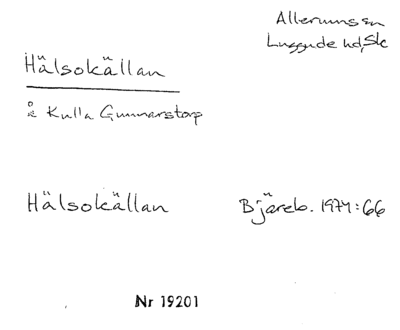 Allerums sn
Luggude hd, Sk
Hälsokällan
å Kulla Gunnarstorp
Hälsokällan Bjäreb. 1974:66
Nr 19201